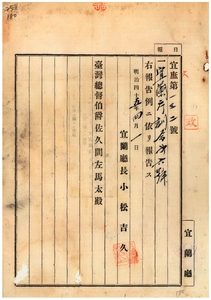 報告
宜庶第一二二號
一宜蘭廳訓令第六號
右報告例ニ依リ報告ス
明治四十五年四月一日
宜蘭廳長小松吉久
臺灣總督伯爵佐久間左馬太殿
宜蘭廳